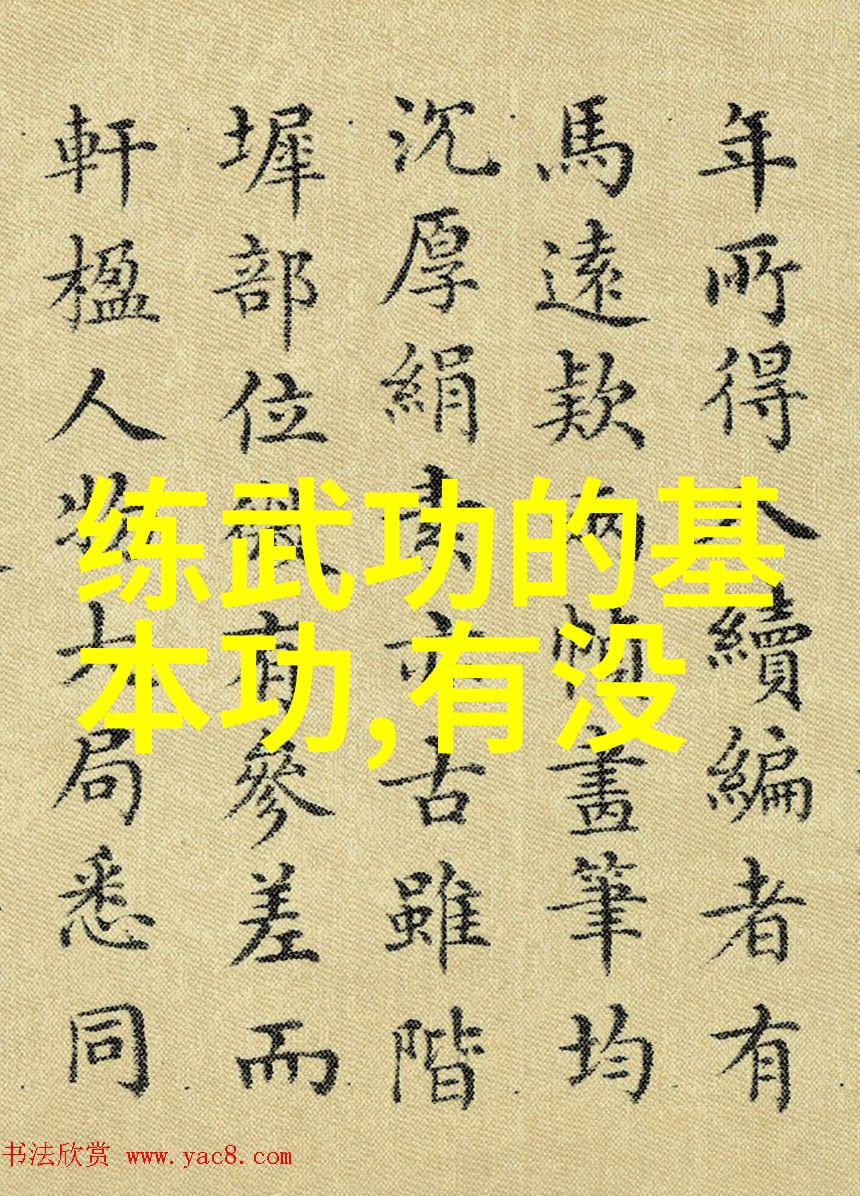 年所得入續編者有
馬遠欵兩幀畫筆均
沉厚絹素亦古雖階
墀部位微有參差而
軒楹人物大局悉同
练武功的基
本功,有没
书法欣赏 www.yac8.com